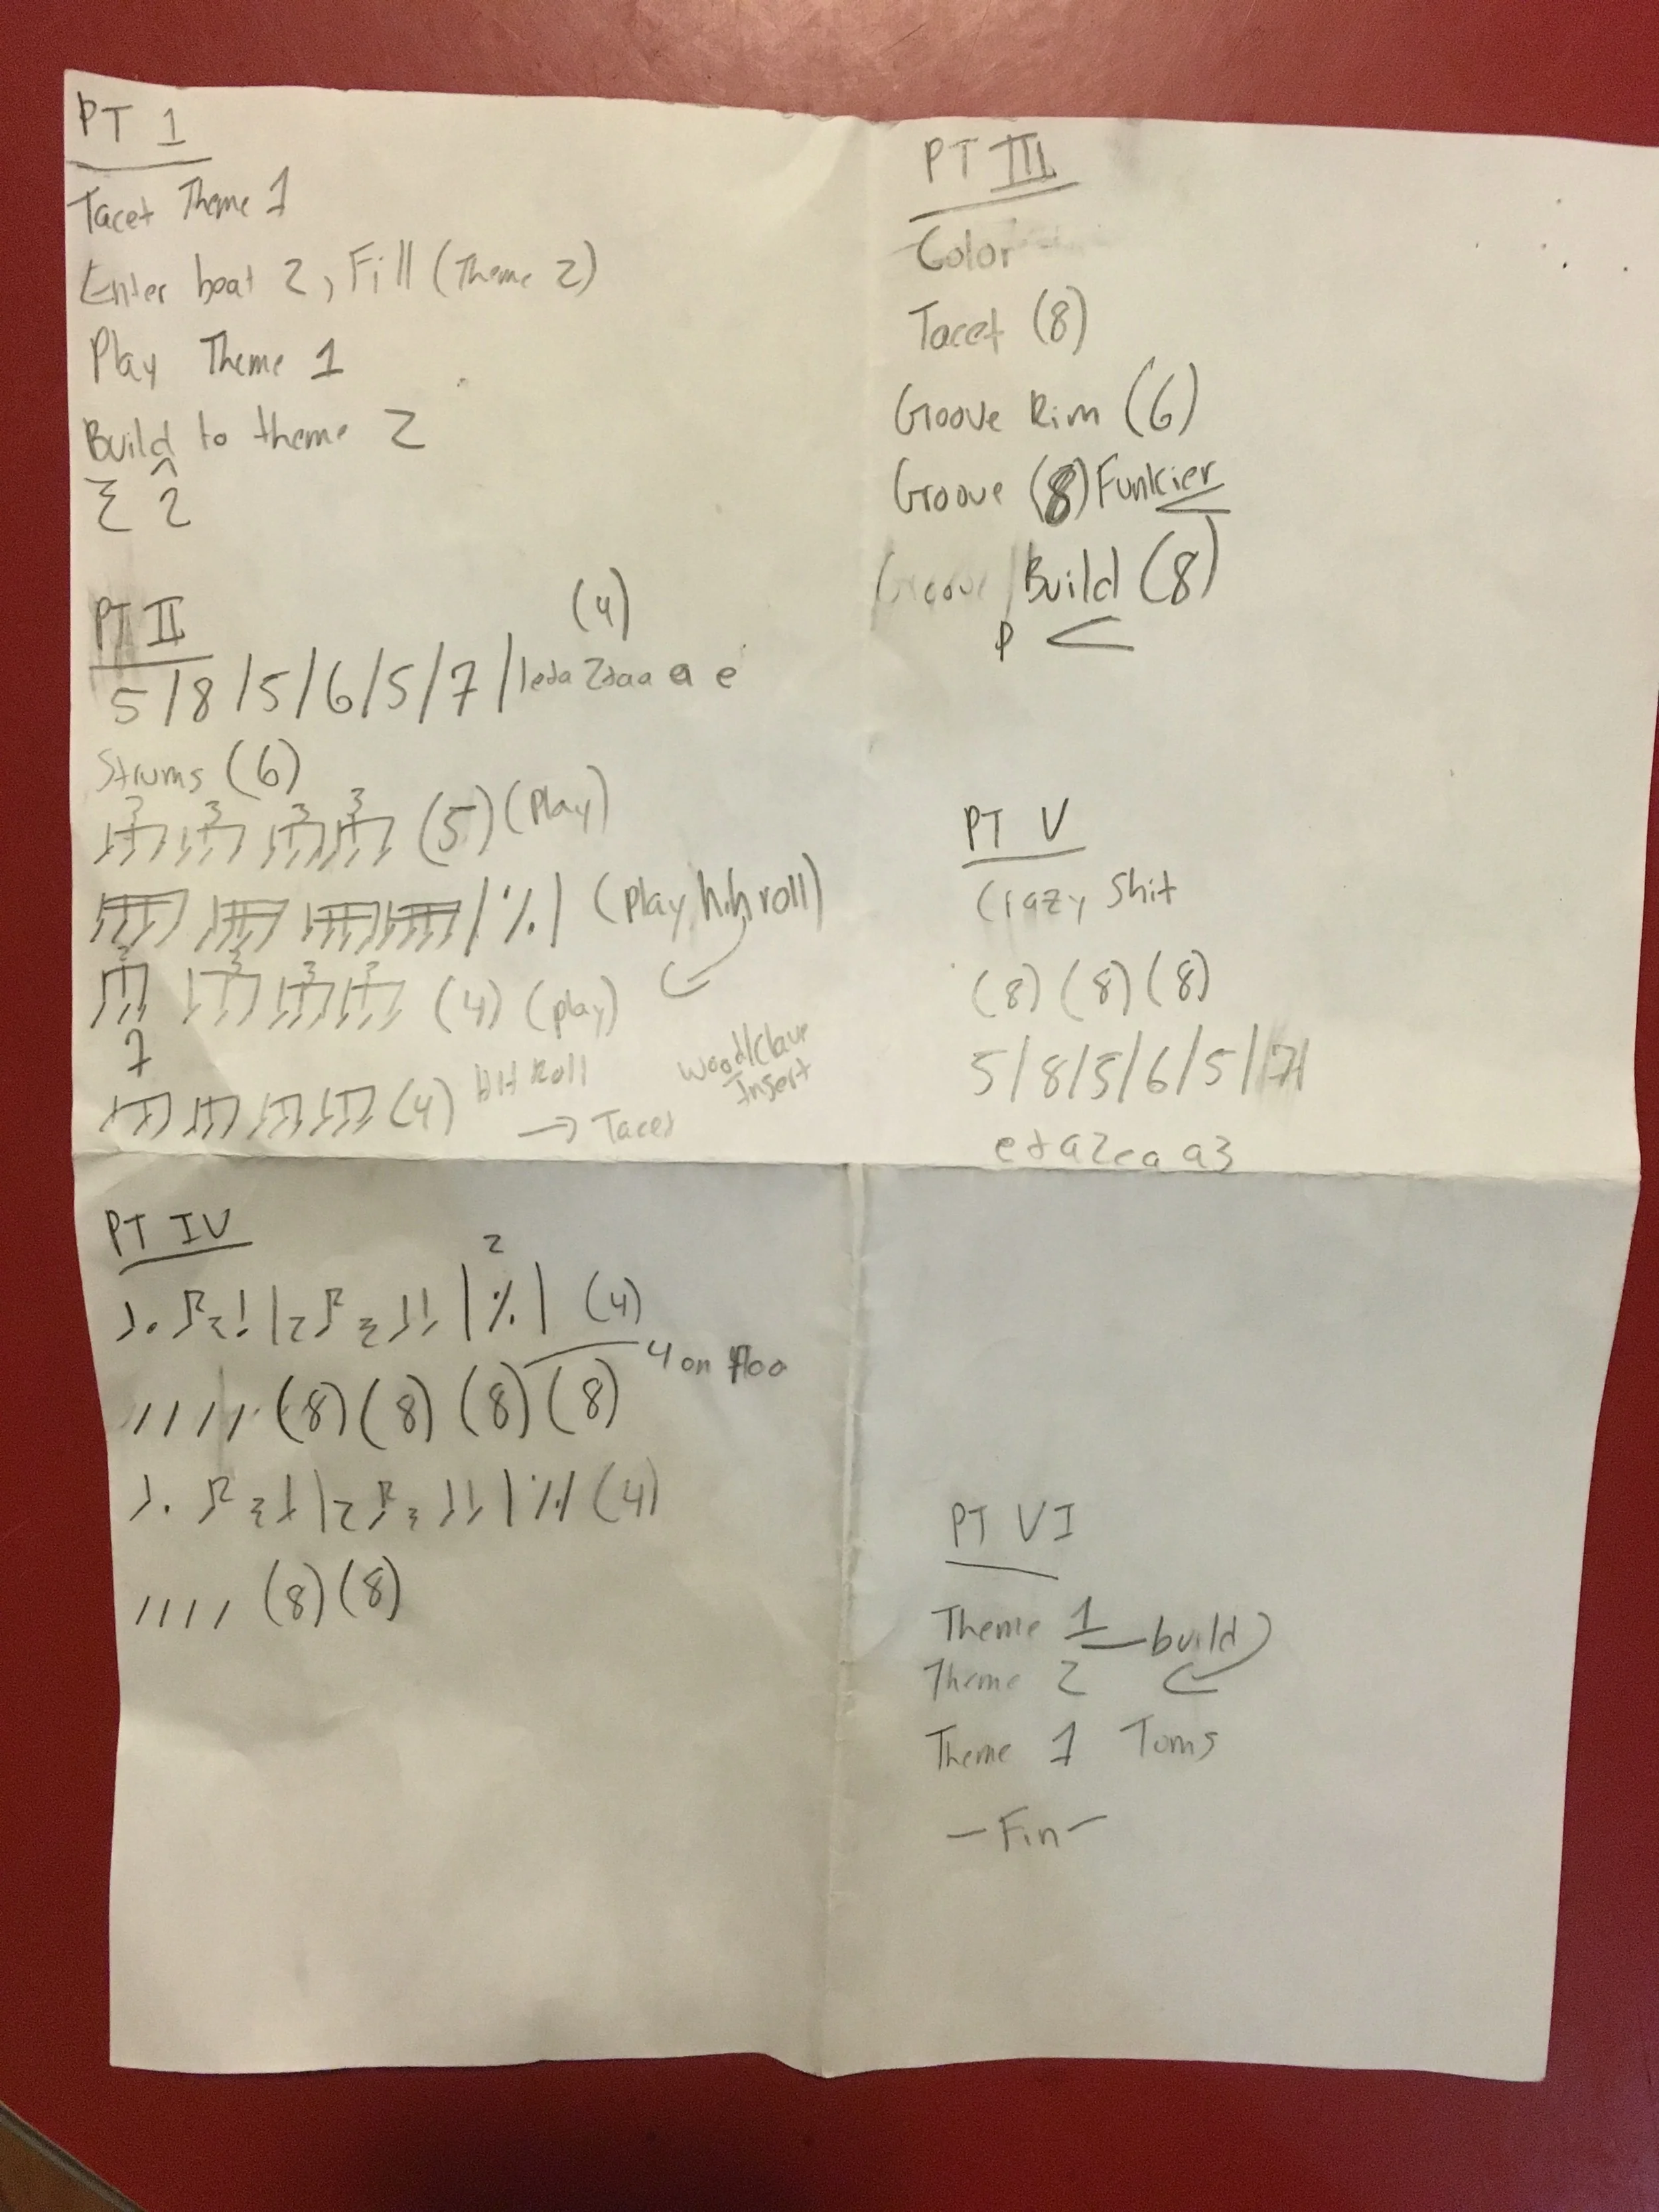 PT 1
Tacet Theme 1
Enter beat 2, Fill (Theme 2)
Play Theme 1
Build to theme 2
2
PT II
(4)
5/8/5/6/5/7/ 1eda 2daa a e
Strums (6)
3 3 3 3 (5) (Play)
/ ٪ / (Play, h.h roll)
3 3 3 3 (4) (play)
7
(4) Hit Roll
→ Tacet
Wood/Clave
Insert
PT III
Color
Tacet (8)
Groove Rim (6)
Groove (8) Funkier
Groove / Build (8)
P <
PT IV
2
| ٪ | (4)
4 on floo
//// (8) (8) (8) (8)
| ٪ | (4)
//// (8) (8)
PT V
Crazy Shit
(8) (8) (8)
5/8/5/6/5/7/
e+a2ea a3
PT VI
Theme 1 — build
Theme 2
Theme 1 Toms
— Fin —